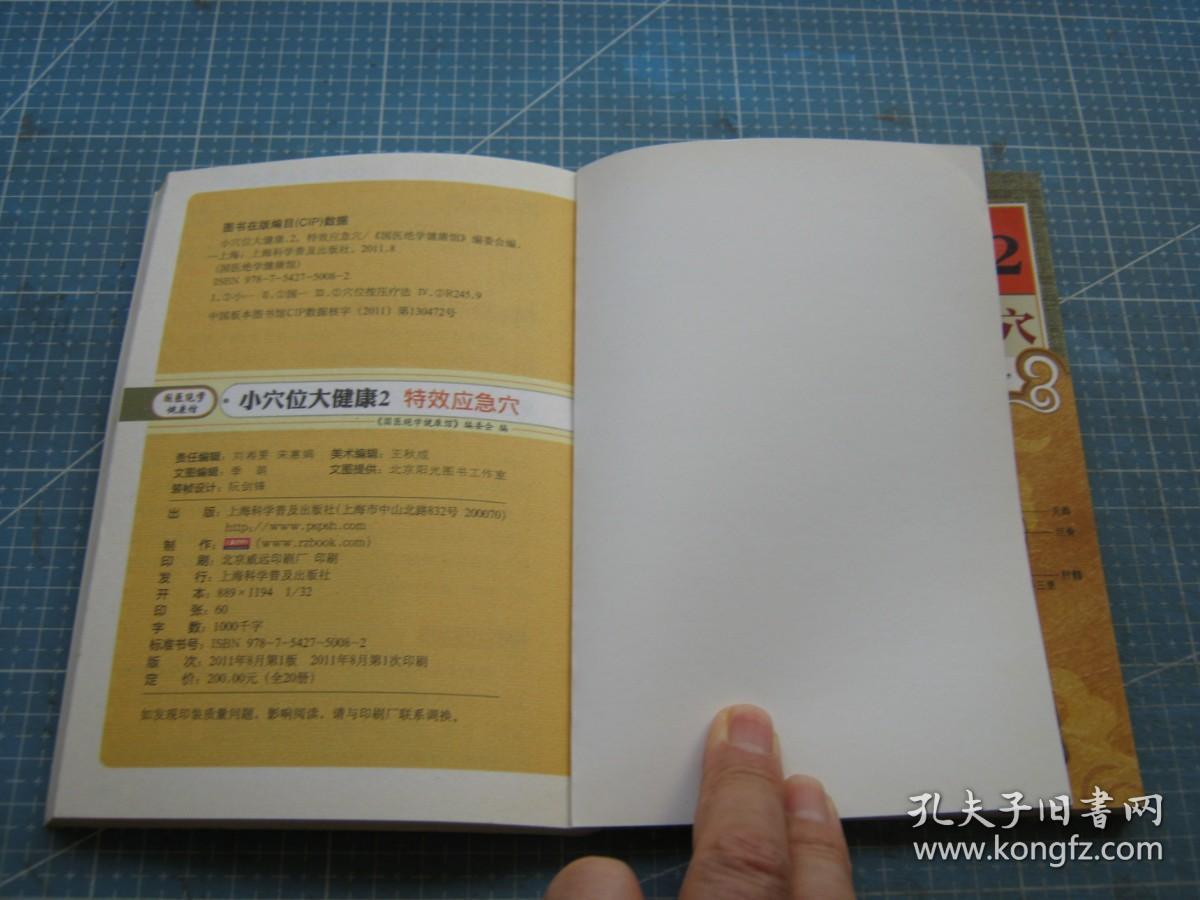 图书在版编目(CIP)数据
小穴位大健康.2,特效应急穴/《国医绝学健康馆》编委会编.
—上海:上海科学普及出版社,2011.8
(国医绝学健康馆)
ISBN 978-7-5427-5008-2
Ⅰ.①小… Ⅱ.①国… Ⅲ.①穴位按压疗法 Ⅳ.①R245.9
中国版本图书馆CIP数据核字(2011)第130472号
国医绝学
健康馆
·小穴位大健康2 特效应急穴
《国医绝学健康馆》编委会 编
责任编辑:刘湘雯 宋惠娟 美术编辑:王秋成
文图编辑:季 鹃 文图提供:北京阳光图书工作室
装帧设计:阮剑锋
出 版:上海科学普及出版社(上海市中山北路832号 200070)
http://www.pspsh.com
制 作:(www.rzbook.com)
印 刷:北京威远印刷厂 印刷
发 行:上海科学普及出版社
开 本:889×1194 1/32
印 张:60
字 数:1000千字
标准书号:ISBN 978-7-5427-5008-2
版 次:2011年8月第1版 2011年8月第1次印刷
定 价:200.00元(全20册)
如发现印装质量问题,影响阅读,请与印刷厂联系调换。
2
穴
孔夫子旧书网
www.kongfz.com